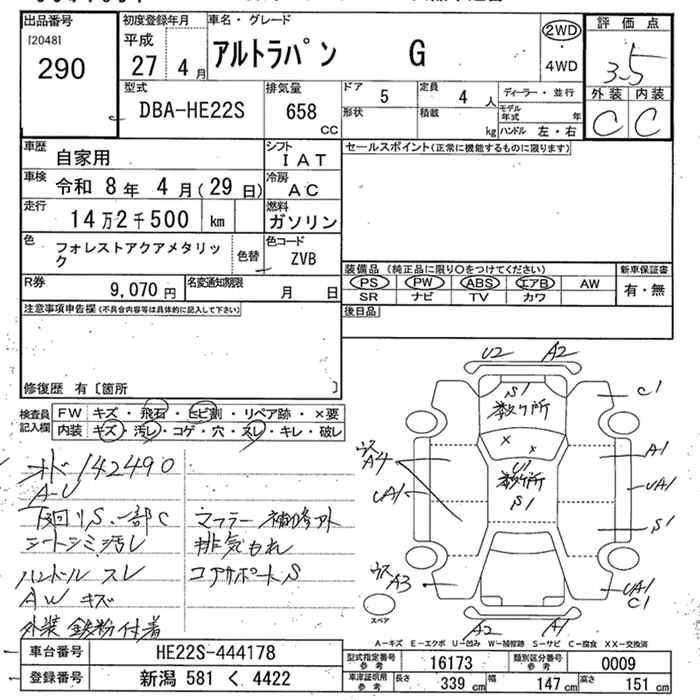 出品番号
[2048]
290
初度登録年月
平成
27 4 月
車名・グレード
アルトラパン G
2WD
・
4WD
評価点
3.5
外装 内装
C C
型式
DBA-HE22S
排気量
658 CC
ドア 5
定員 4 人
ディーラー・並行
形状
積載 kg
モデル年式 年
ハンドル 左・右
車歴
自家用
シフト
IAT
セールスポイント(正常に機能するものに限ります)
車検
令和 8年 4月(29日)
冷房
AC
走行
14万2千500 km
燃料
ガソリン
色
フォレストアクアメタリック
色替
色コード
ZVB
装備品 (純正品に限り○をつけてください)
新車保証書
PS PW ABS エアB AW
有・無
SR ナビ TV カワ
R券
9,070 円
名変通知期限
月 日
後日品
注意事項申告欄(不具合内容等は具体的に記入して下さい)
修復歴 有 [箇所 ]
検査員記入欄
FW キズ・飛石・ヒビ割・リペア跡・×要
内装 キズ・汚レ・コゲ・穴・スレ・キレ・破レ
オド 142490
A-U
下回りS.一部C
シートシミ汚レ
ハンドル スレ
AW キズ
外装 鉄粉付着
マフラー 補修跡
排気もれ
コアサポートS
U2 A2
S1
数ヶ所
C1
× ×
U1
数ヶ所
S1
A4
UA1
A1
UA1
S1
A3
UA1
C1
A2 A1
スペア
A-キズ E-エクボ U-凹み W-補修跡 S-サビ C-腐食 XX-交換済
車台番号 HE22S-444178
登録番号 新潟 581 く 4422
型式指定番号 参考 16173
類別区分番号 参考 0009
車庫証明用 参考 長さ 339 cm 幅 147 cm 高さ 151 cm